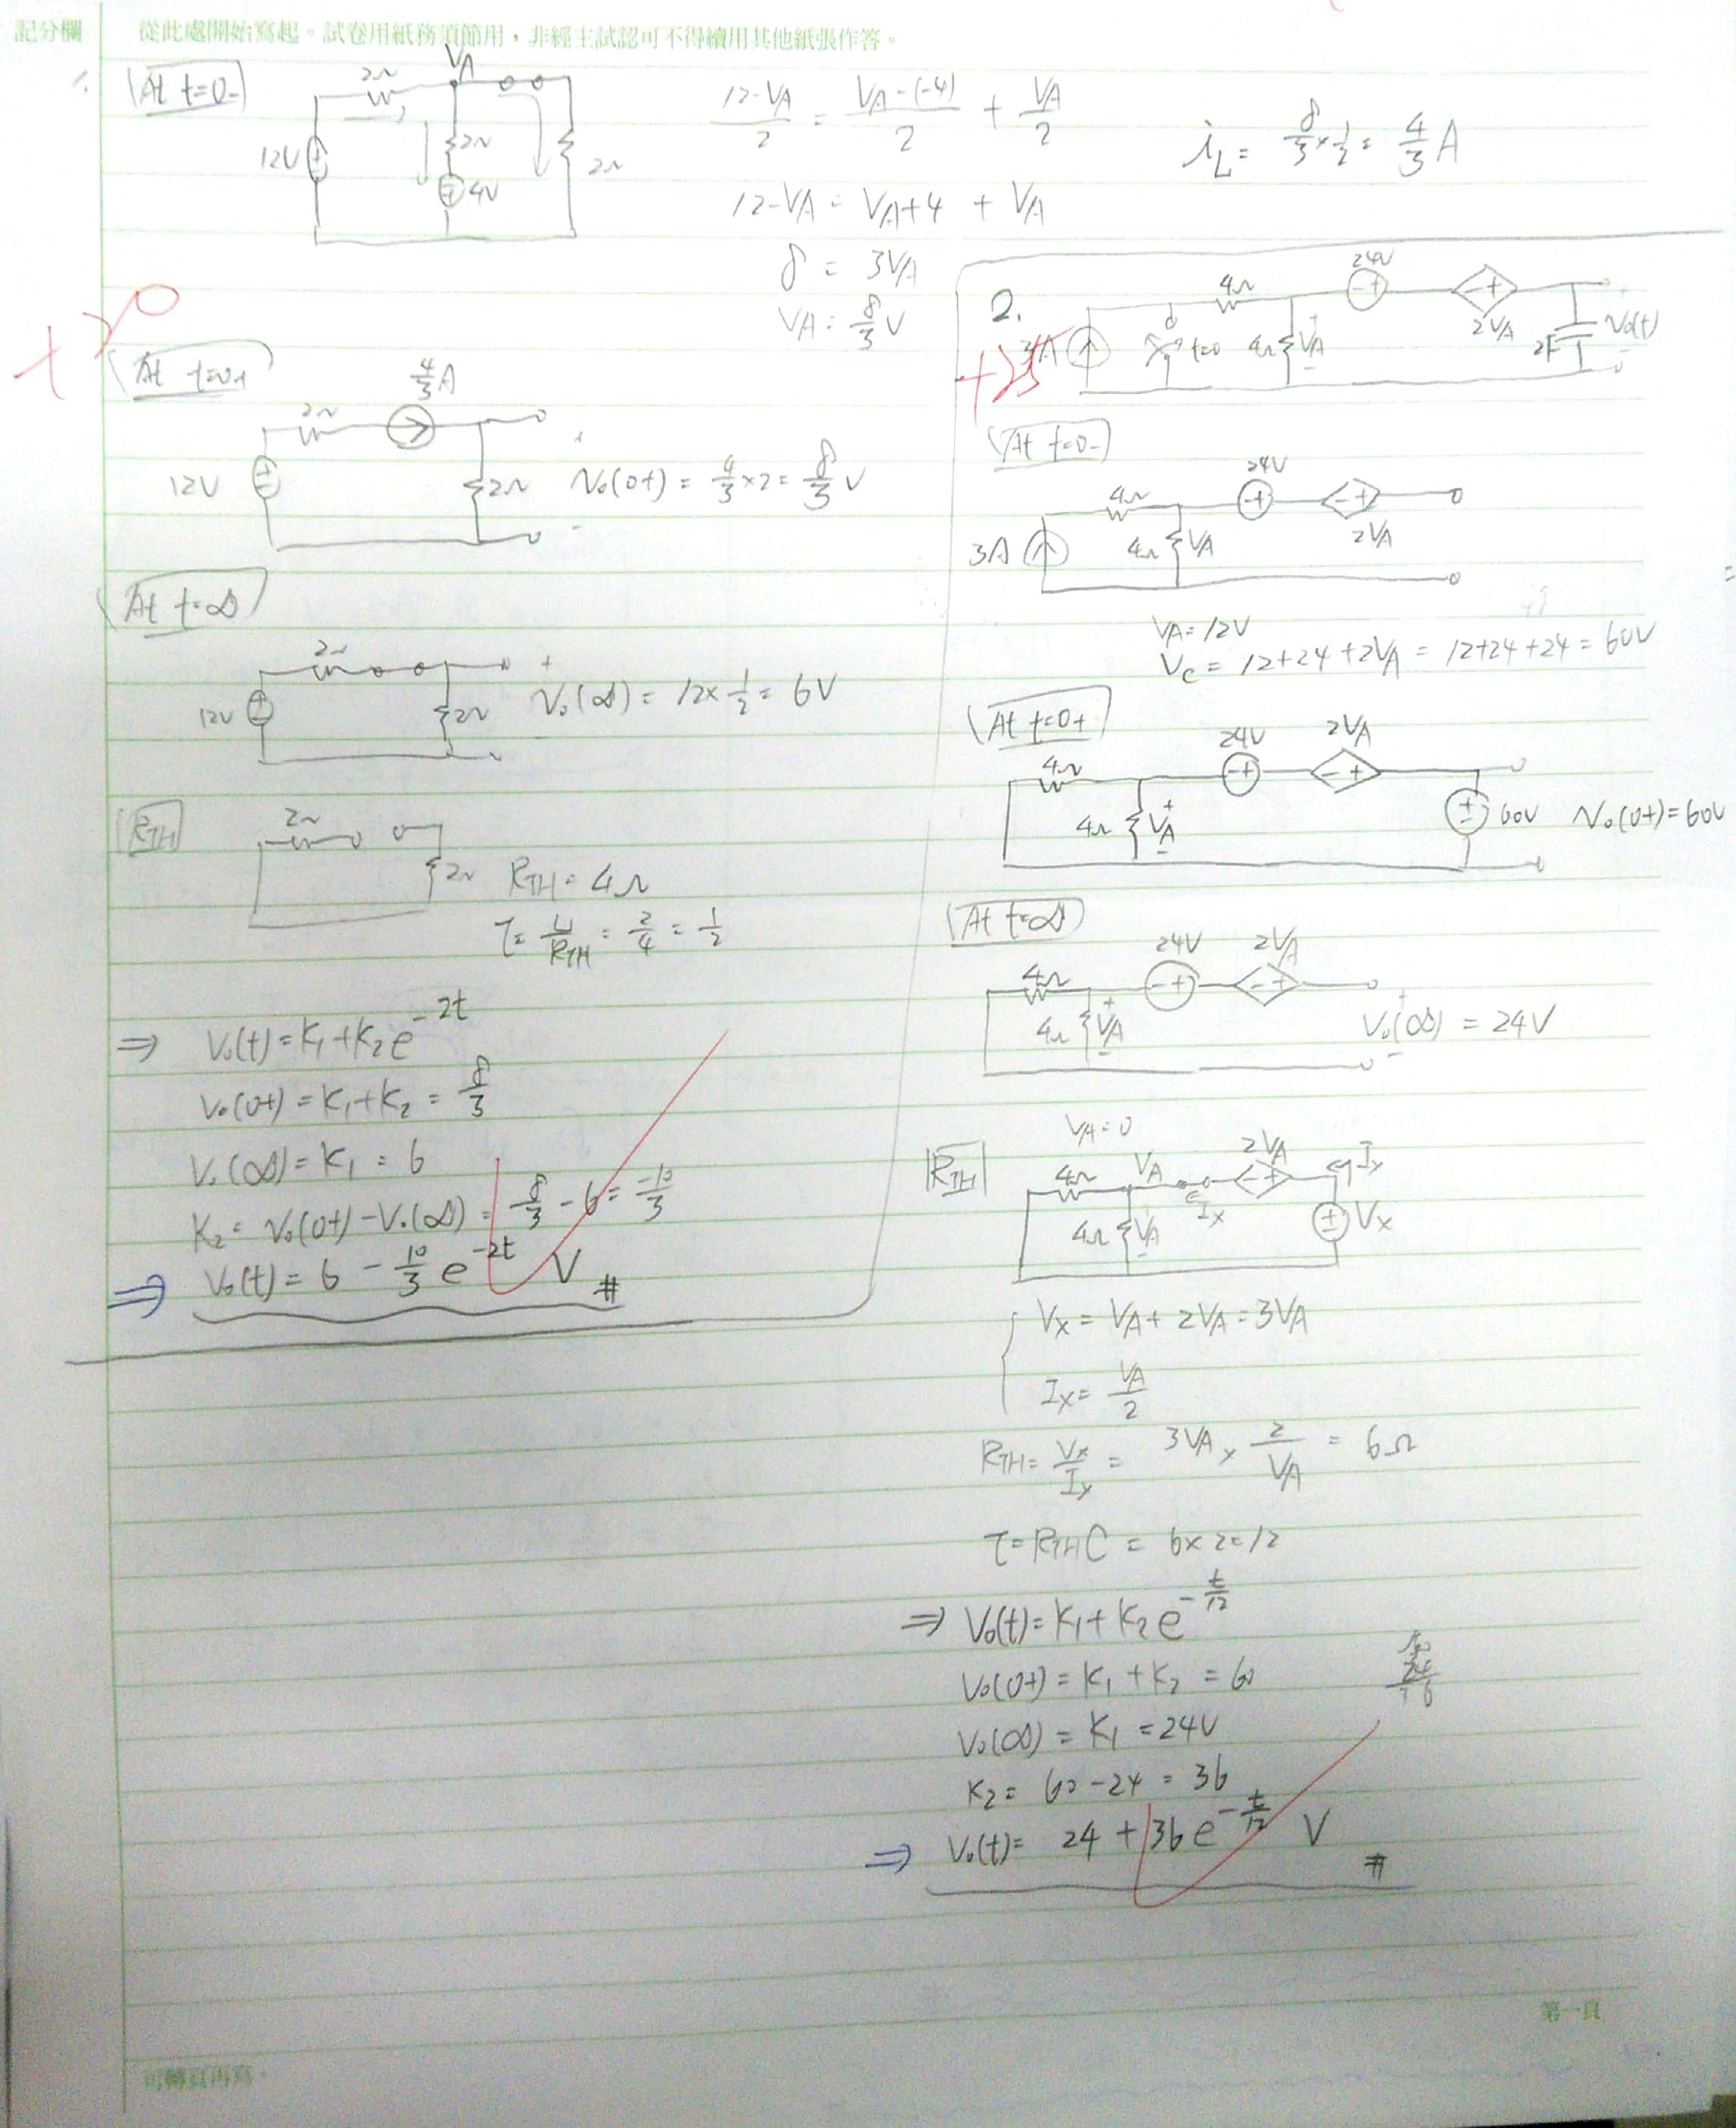 記分欄
從此處開始寫起。試卷用紙務須節用，非經主試認可不得續用其他紙張作答。
1.
At t=0-
2Ω
VA
12V
2Ω
4V
2Ω
(12-VA)/2 = (VA-(-4))/2 + VA/2
12-VA = VA+4 + VA
8 = 3VA
VA = 8/3 V
iL = 8/3 × 1/2 = 4/3 A
At t=0+
4/3 A
2Ω
12V
2Ω
Vo(0+) = 4/3 × 2 = 8/3 V
At t=∞
2Ω
12V
2Ω
+
Vo(∞) = 12 × 1/2 = 6V
RTH
2Ω
2Ω
RTH = 4Ω
τ = L/RTH = 2/4 = 1/2
⇒ Vo(t) = K1+K2e^-2t
Vo(0+) = K1+K2 = 8/3
Vo(∞) = K1 = 6
K2 = Vo(0+)-Vo(∞) = 8/3 - 6 = -10/3
⇒ Vo(t) = 6 - 10/3 e^-2t V #
2.
+25
3A
4Ω
t=0
4Ω
+
VA
-
24V
-+
-+
2VA
2F
+
Vo(t)
-
At t=0-
3A
4Ω
4Ω
VA
24V
-+
-+
2VA
VA=12V
Vc = 12+24+2VA = 12+24+24 = 60V
At t=0+
4Ω
4Ω
+
VA
-
24V
-+
2VA
-+
60V
Vo(0+)=60V
At t=∞
4Ω
4Ω
+
VA
-
24V
-+
2VA
-+
+
Vo(∞) = 24V
-
VA=0
RTH
4Ω
VA
4Ω
VA
-
Ix
2VA
-+
Ix
Vx
Vx = VA+2VA = 3VA
Ix = VA/2
RTH = Vx/Ix = 3VA × 2/VA = 6Ω
τ = RTHC = 6×2=12
⇒ Vo(t) = K1+K2e^-t/12
Vo(0+) = K1+K2 = 60
Vo(∞) = K1 = 24V
K2 = 60-24 = 36
⇒ Vo(t) = 24+36e^-t/12 V #
第一頁